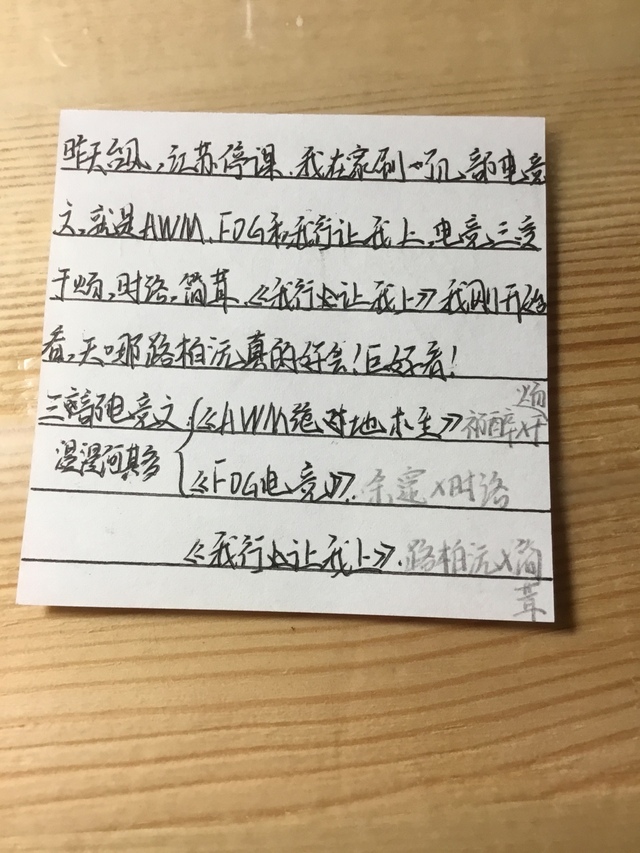 昨天台风,江苏停课.我在家刷一下、部电竞
文,就是AWM、FOG和我行让我上、电竞、三变
于炀,时洛,简茸,《我行让我上》我刚开始
看,天哪路柏沅真的好会!巨好看!
三部电竞文 《AWM绝对地求生》祁醉×于炀
漫漫何其多 《FOG电竞》.余邃×时洛
《我行让我上》.路柏沅×简茸